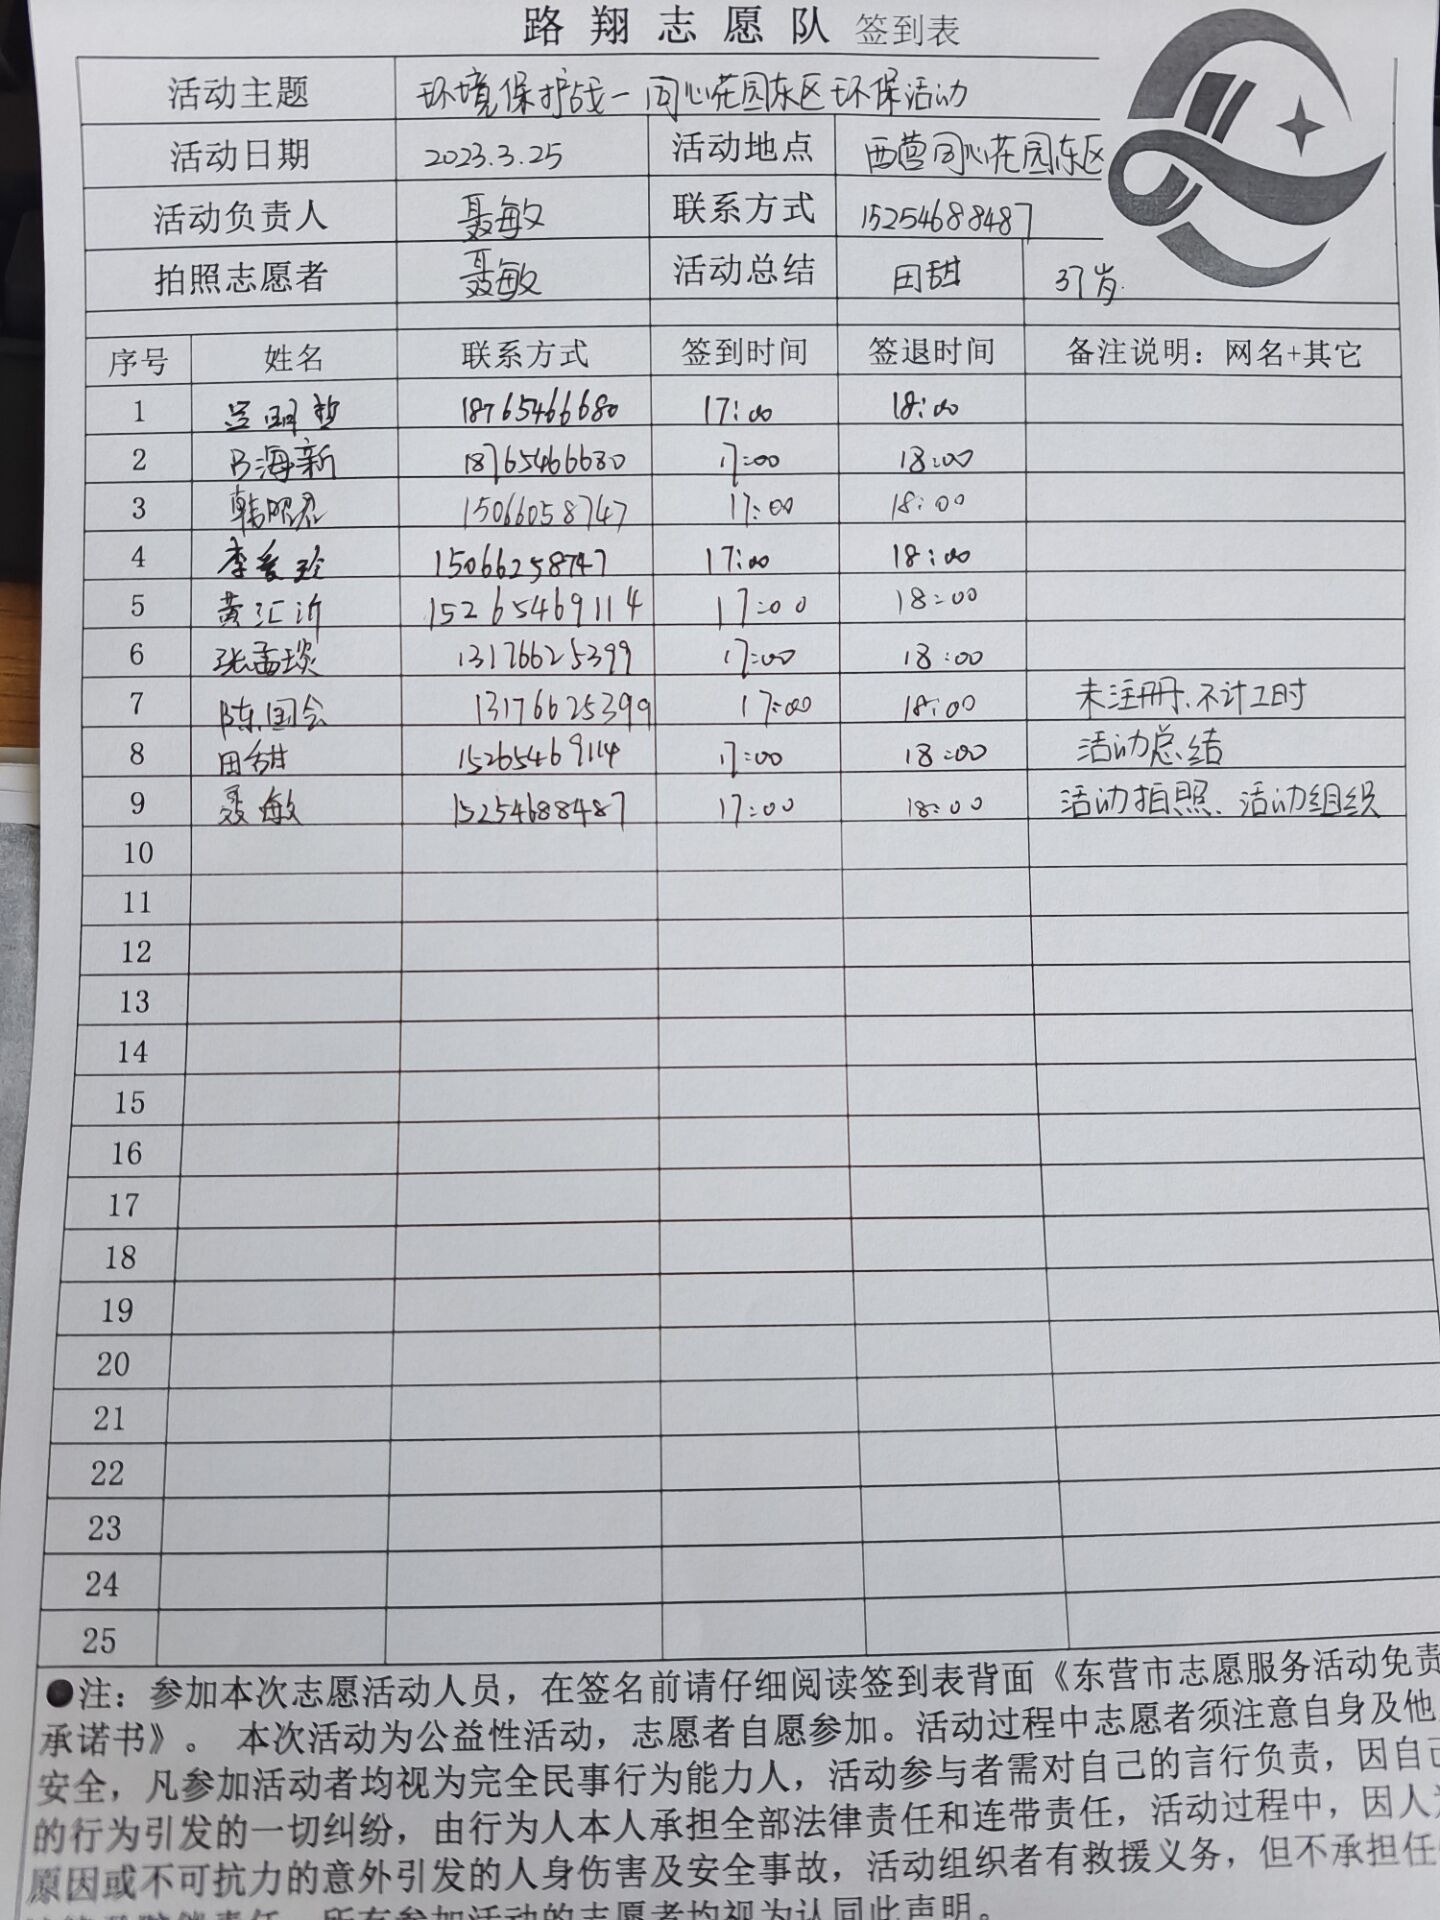 路翔志愿队 签到表
活动主题 环境保护战一同心花园东区环保活动
活动日期 2023.3.25 活动地点 西营同心花园东区
活动负责人 聂敏 联系方式 15254688487
拍照志愿者 聂敏 活动总结 田甜 37岁
序号 姓名 联系方式 签到时间 签退时间 备注说明：网名+其它
1 吕明哲 18765466680 17:00 18:00
2 吕海新 18765466680 17:00 18:00
3 韩照君 15066058747 17:00 18:00
4 李爱玲 15066258747 17:00 18:00
5 黄汇沂 15265469114 17:00 18:00
6 张孟琰 13176625399 17:00 18:00
7 陈国会 13176625399 17:00 18:00 未注册、不计工时
8 田甜 15265469114 17:00 18:00 活动总结
9 聂敏 15254688487 17:00 18:00 活动拍照、活动组织
10
11
12
13
14
15
16
17
18
19
20
21
22
23
24
25
●注：参加本次志愿活动人员，在签名前请仔细阅读签到表背面《东营市志愿服务活动免责
承诺书》。 本次活动为公益性活动，志愿者自愿参加。活动过程中志愿者须注意自身及他
安全，凡参加活动者均视为完全民事行为能力人，活动参与者需对自己的言行负责，因自己
的行为引发的一切纠纷，由行为人本人承担全部法律责任和连带责任，活动过程中，因人
原因或不可抗力的意外引发的人身伤害及安全事故，活动组织者有救援义务，但不承担任
责任，所有参加活动的志愿者均视为认同此声明。